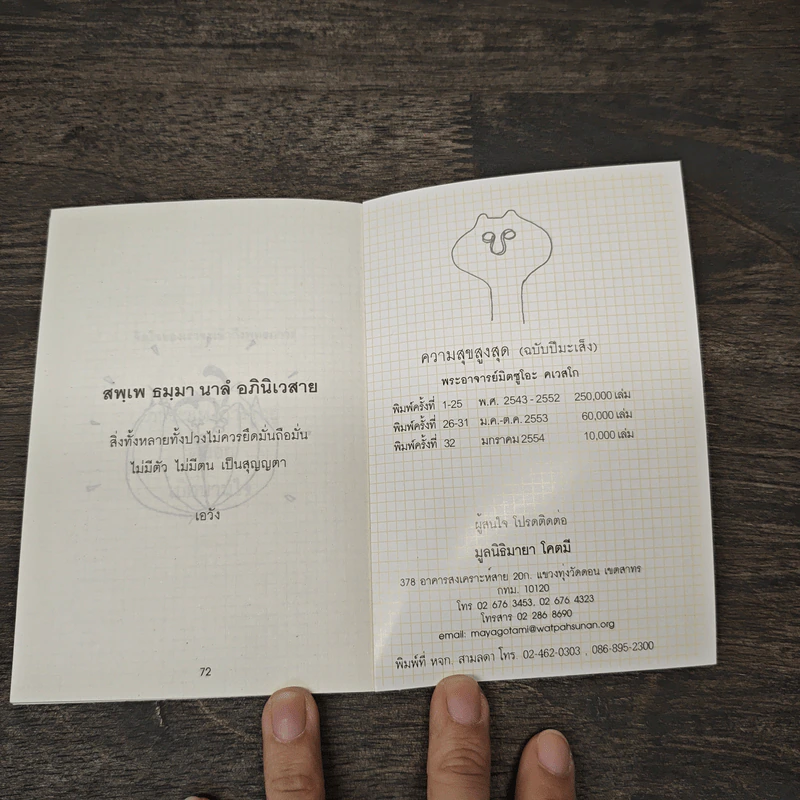 สพฺเพ ธมฺมา นาลํ อภินิเวสาย
สิ่งทั้งหลายทั้งปวงไม่ควรยึดมั่นถือมั่น
ไม่มีตัว ไม่มีตน เป็นสุญญตา
เอวัง
72
ความสุขสูงสุด (ฉบับปีมะเส็ง)
พระอาจารย์มิตซูโอะ คเวสโก
พิมพ์ครั้งที่ 1-25 พ.ศ. 2543 - 2552 250,000 เล่ม
พิมพ์ครั้งที่ 26-31 ม.ค.-ต.ค. 2553 60,000 เล่ม
พิมพ์ครั้งที่ 32 มกราคม 2554 10,000 เล่ม
ผู้สนใจ โปรดติดต่อ
มูลนิธิมายา โคตมี
378 อาคารสงเคราะห์สาย 20ก. แขวงทุ่งวัดดอน เขตสาทร
กทม. 10120
โทร 02 676 3453, 02 676 4323
โทรสาร 02 286 8690
email: mayagotami@watpahsunan.org
พิมพ์ที่ หจก. สามลดา โทร. 02-462-0303 , 086-895-2300